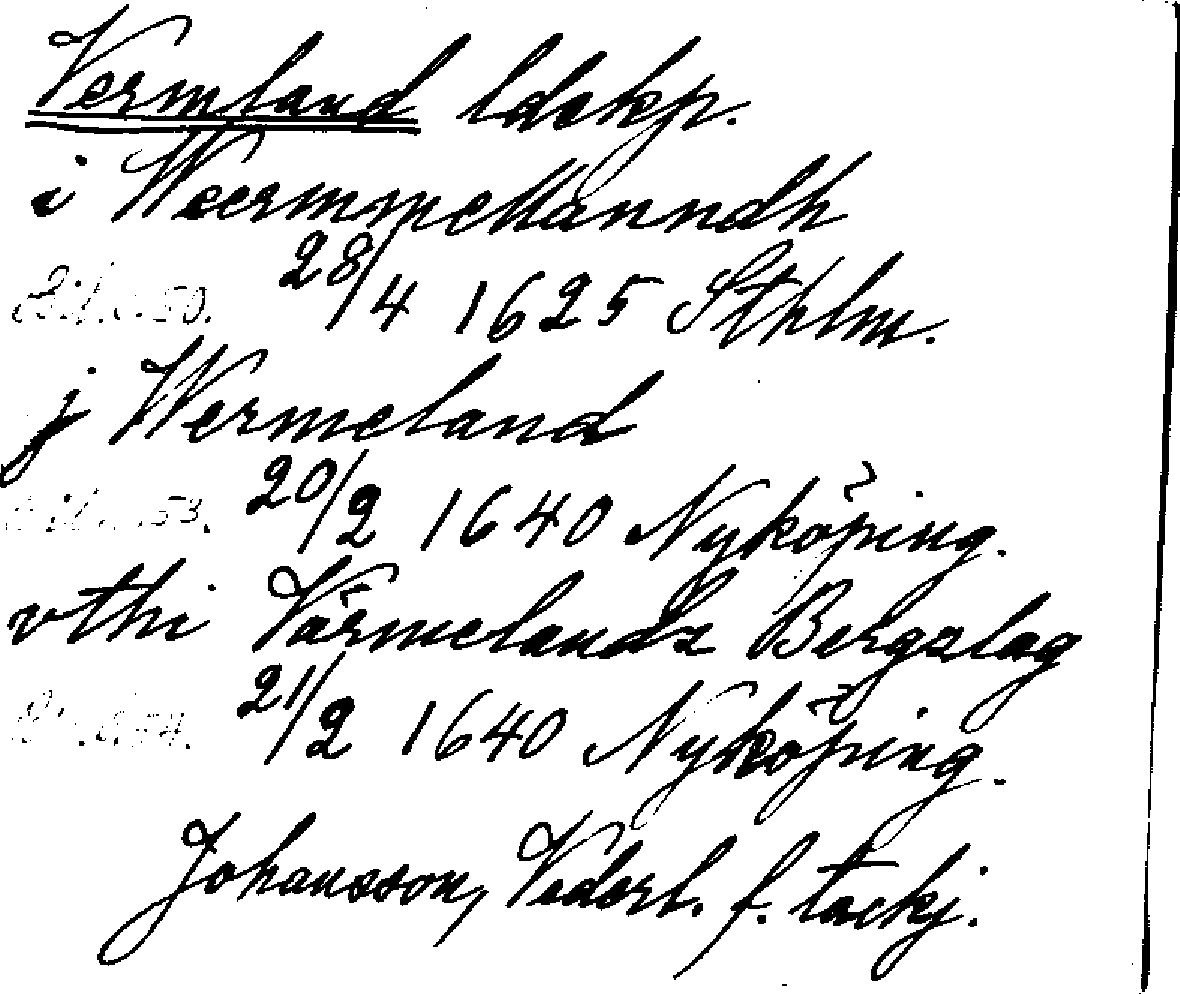 Vermland ldskp.
i Weermmellanndh
28/4 1625 Sthlm.
j Wermeland
20/2 1640 Nyköping.
vthi Värmelandz Bergzlag
21/2 1640 Nyköping.
Johansson, Vederl. f. tackj.